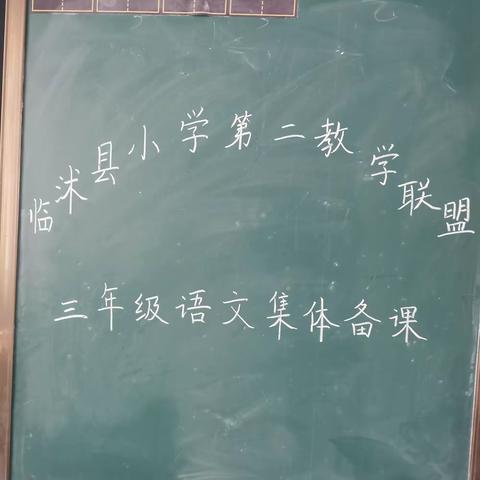 临沭县小学第二教学联盟
三年级语文集体备课